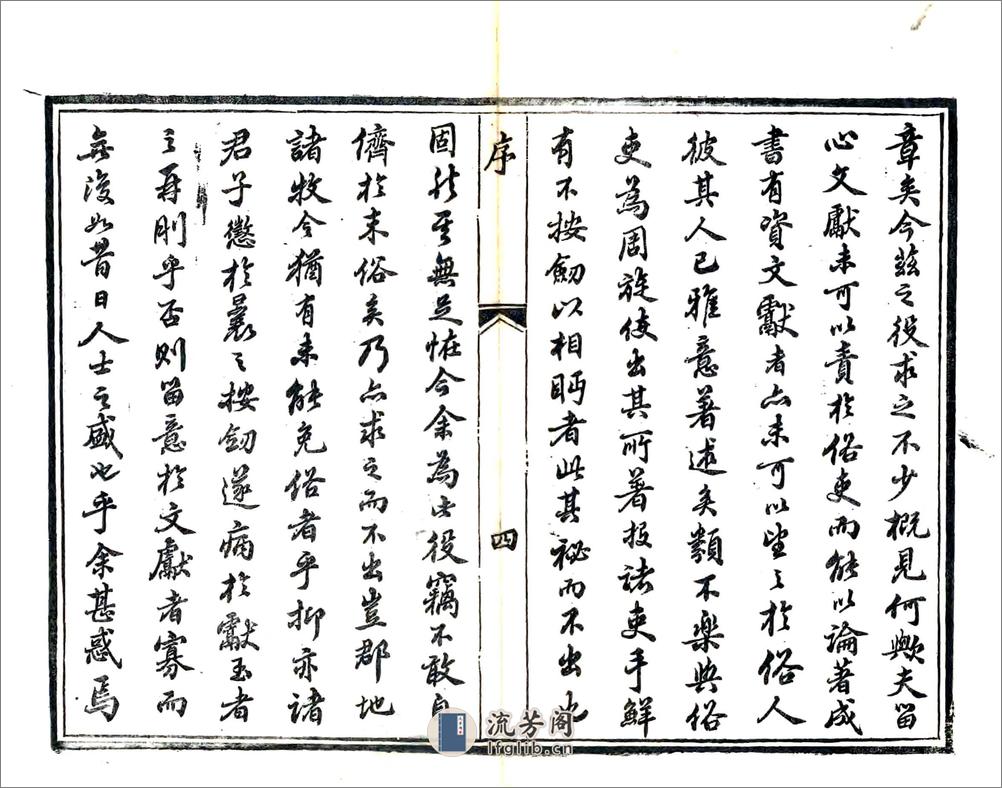 章矣今茲之役求之不少概見何歟夫留
心文獻未可以責於俗吏而能以論著成
書有資文獻者亦未可以望之於俗人
彼其人已雅意著述矣類不樂與俗
吏為周旋使出其所著投諸吏手鮮
有不按劒以相眄者此其祕而不出也
序
四
固然無足怪今余為此役竊不敢自
儕於末俗矣乃亦求之而不出豈郡地
諸牧令猶有未能免俗者乎抑亦諸
君子懲於曩之按劒遂痛於獻玉者
之再刖乎否則留意於文獻者寡而
無復如昔日人士之盛也乎余甚惑焉
流芳阁
lfglib.cn